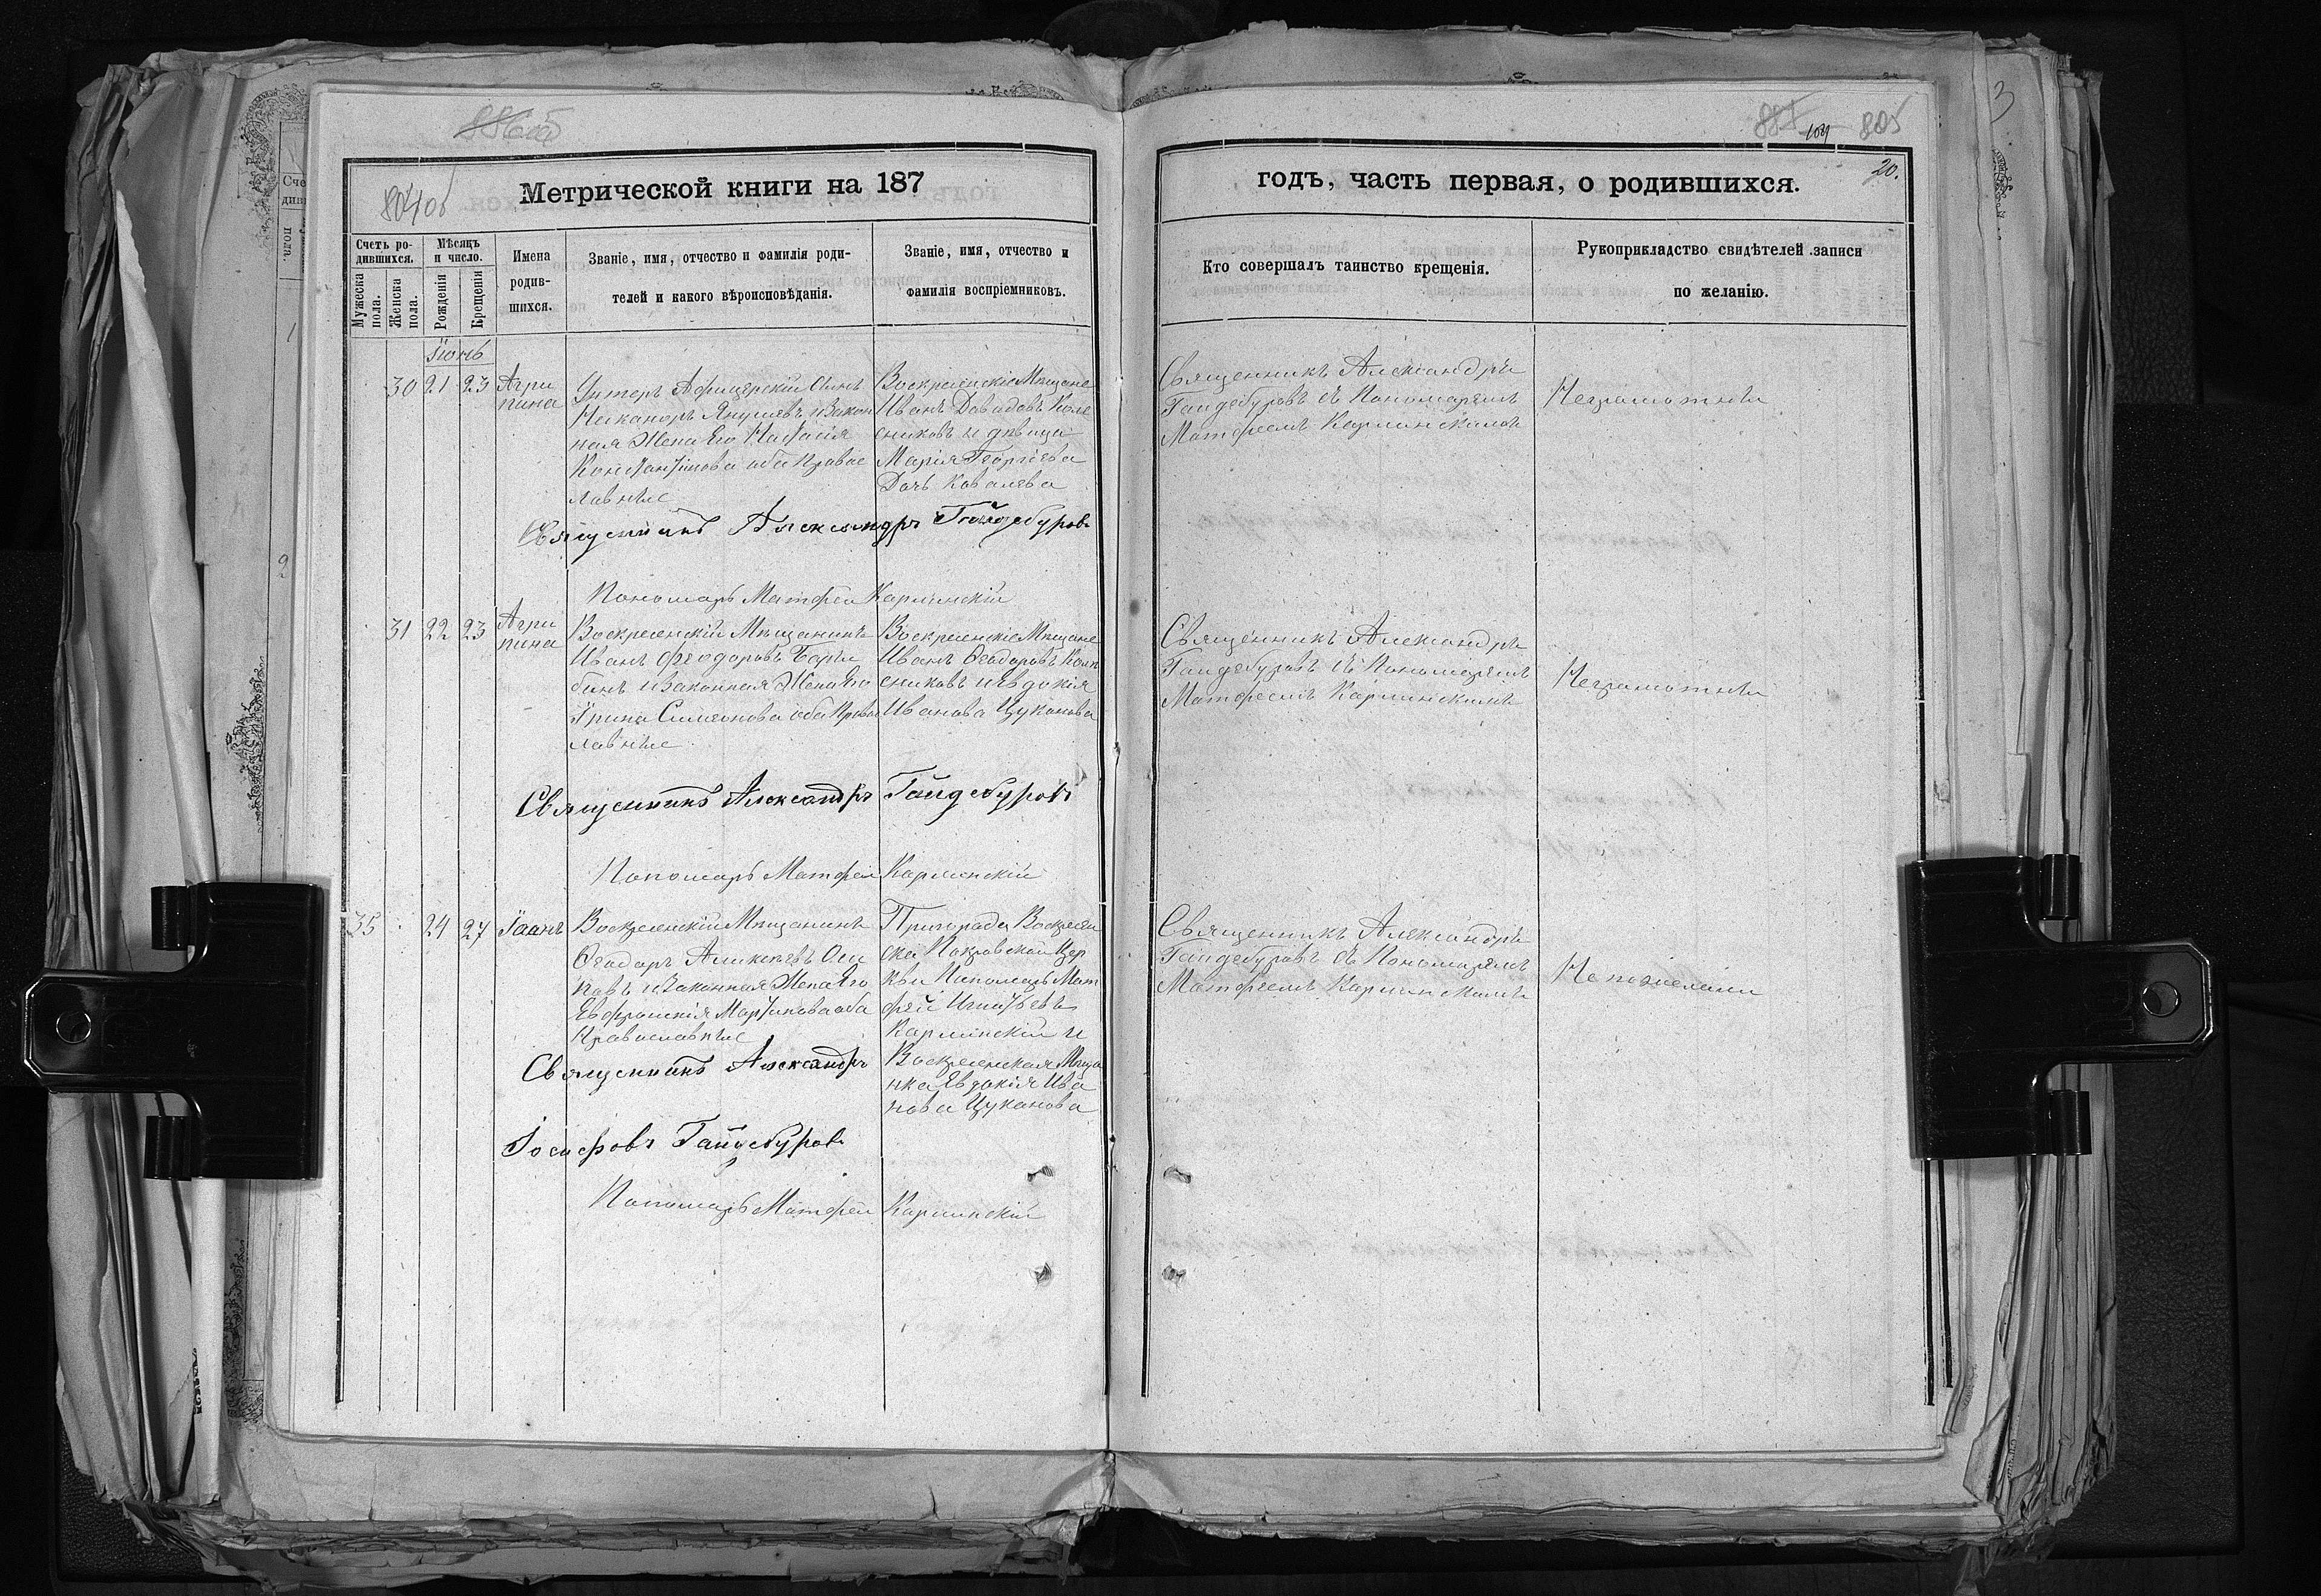 804об
Метрической книги на 187
Счетъ ро-
дившихся.
Мѣсяцъ
и число.
Мужеска
пола.
Женска
пола.
Рожденія
Крещенія
Имена
родив-
шихся.
Званіе, имя, отчество и фамилія роди-
телей и какого вѣроисповѣданія.
Званіе, имя, отчество и
фамилія воспріемниковъ.
Іюнь
30 21 23
Агри
пина
Унтеръ Афицерскій Сынъ
Никаноръ Янушевъ и Закон
ная Жена Его Настасія
Константинова оба Правос
лавные
Воскресенскіе Мещане
Иванъ Давидовъ Коле
сниковъ и девица
Марія Георгіева
Дочь Ковалева
Священникъ Александръ Гайдебуровъ
Пономарь Матфей Карпинскій
31 22 23
Агри
пина
Воскресенскій Мещанинъ
Иванъ Феодоровъ
и законная Жена Его
Ірина Симеонова оба Правос
лавные
Воскресенскіе Мещане
Иванъ Феодоровъ Колп
сниковъ и Евдокія
Иванова Цуканова
Священникъ Александръ Гайдебуровъ
Пономарь Матфей Карпинскій
35 24 27
Іоанъ
Воскресенскій Мещанинъ
Феодоръ Аликсеевъ Оси
повъ и Законная Жена Его
Евфросинія Мартинова оба
Православные
Пригорода Воскресен
ска Покровской Цер
кви Пономарь Мат
фей Игнатьевъ
Карпинскій и
Воскресенская Меща
нка Евдокія Ива
нова Цуканова
Священникъ Александръ
Іосифовъ Гайдебуровъ
Пономарь Матфей Карпинскій
104 805
20.
годъ, часть первая, о родившихся.
Кто совершалъ таинство крещенія.
Рукоприкладство свидѣтелей записи
по желанію.
Священникъ Александръ
Гайдебуровъ съ Пономаремъ
Матфеемъ Карпинскимъ
Неграмотны
Священникъ Александръ
Гайдебуровъ съ Пономаремъ
Матфеемъ Карпинскимъ
Неграмотны
Священникъ Александръ
Гайдебуровъ съ Пономаремъ
Матфеемъ Карпинскимъ
Не пожелали